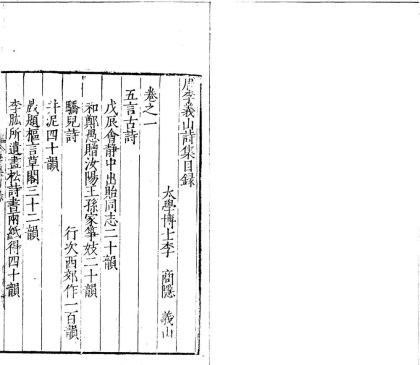 唐李義山詩集目錄
太學博士李 商隱 義山
卷之一
五言古詩
戊辰會靜中出貽同志二十韻
和鄭愚贈汝陽王孫家箏妓二十韻
驕兒詩 行次西郊作一百韻
井泥四十韻
戲題樞言草閣三十二韻
李肱所遺畫松詩書兩紙得四十韻